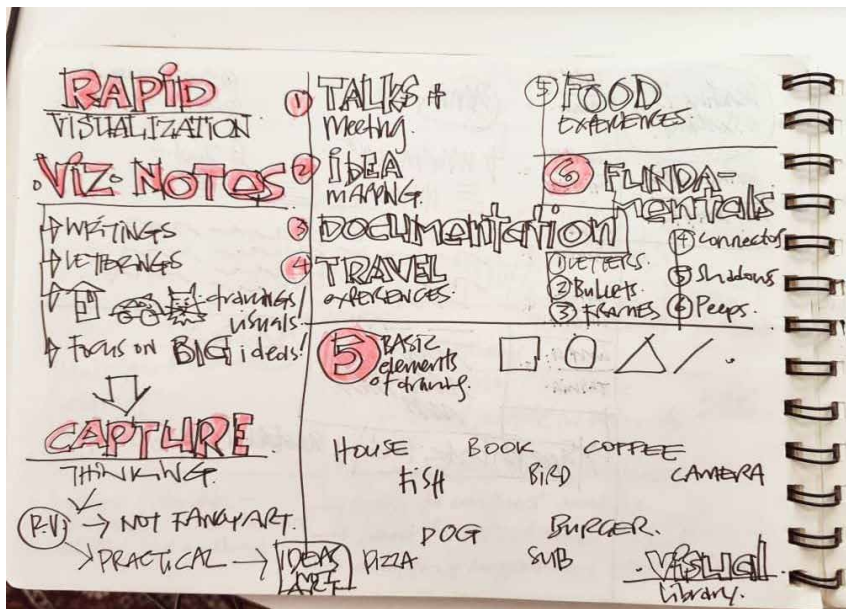 RAPID
VISUALIZATION
·VIZ· NOTES
WRITINGS
LETTERINGS
drawings/
visuals!
FOCUS ON BIG ideas!
CAPTURE
THINKING
R.V.
→ NOT FANCY ART.
→ PRACTICAL → IDEAS
ART
1 TALKS +
Meeting.
2 IDEA
MAPPING.
3 DOCUMENTATION
4 TRAVEL
EXPERIENCES.
5 FOOD
EXPERIENCES
6 FUNDA-
MENTALS
1 LETTERS.
2 Bullets
3 FRAMES
4 Connectors
5 Shadows
6 Peeps.
5 BASIC
elements
of drawing.
HOUSE BOOK COFFEE
FISH BIRD CAMERA
DOG BURGER.
PIZZA SUB
·Visual
Library.